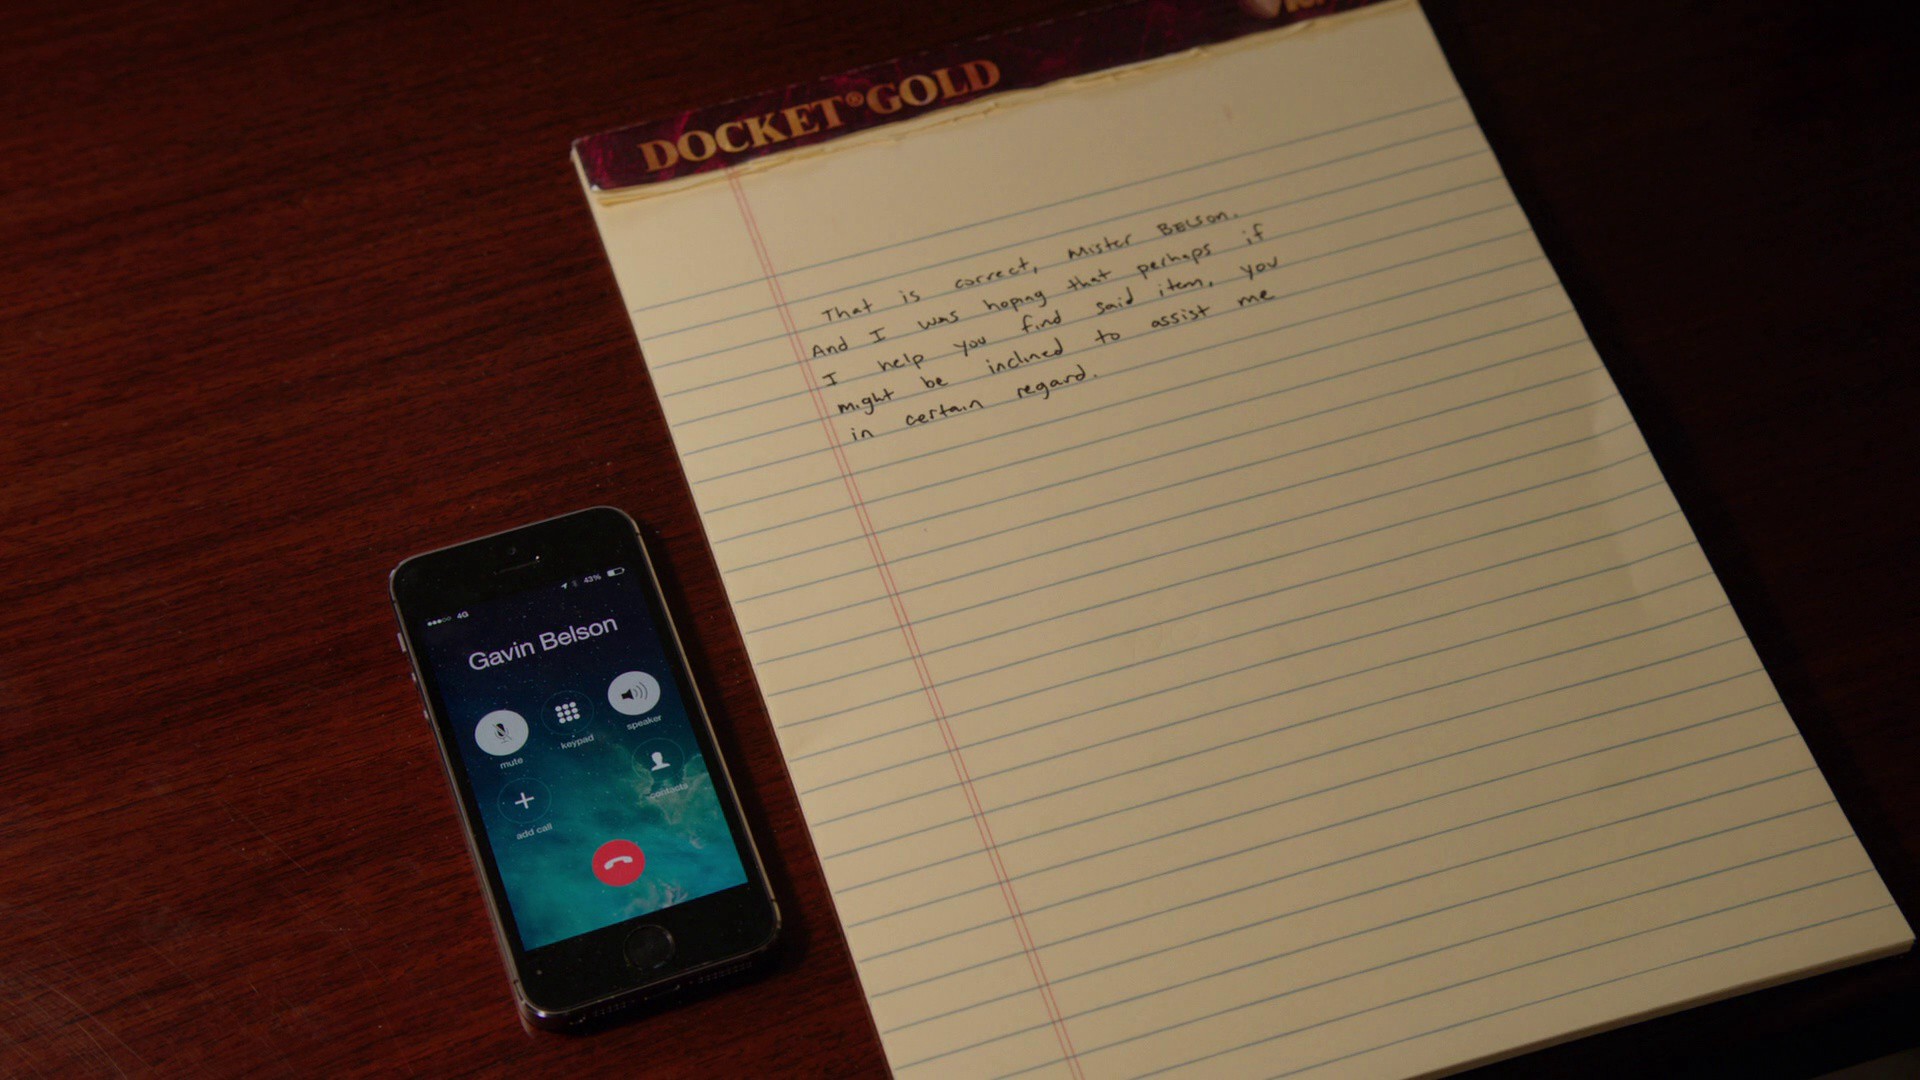 DOCKET®GOLD
That is correct, Mister BELSON.
And I was hoping that perhaps if
I help you find said item, you
might be inclined to assist me
in certain regard.
4G 43%
Gavin Belson
mute keypad speaker
add call contacts